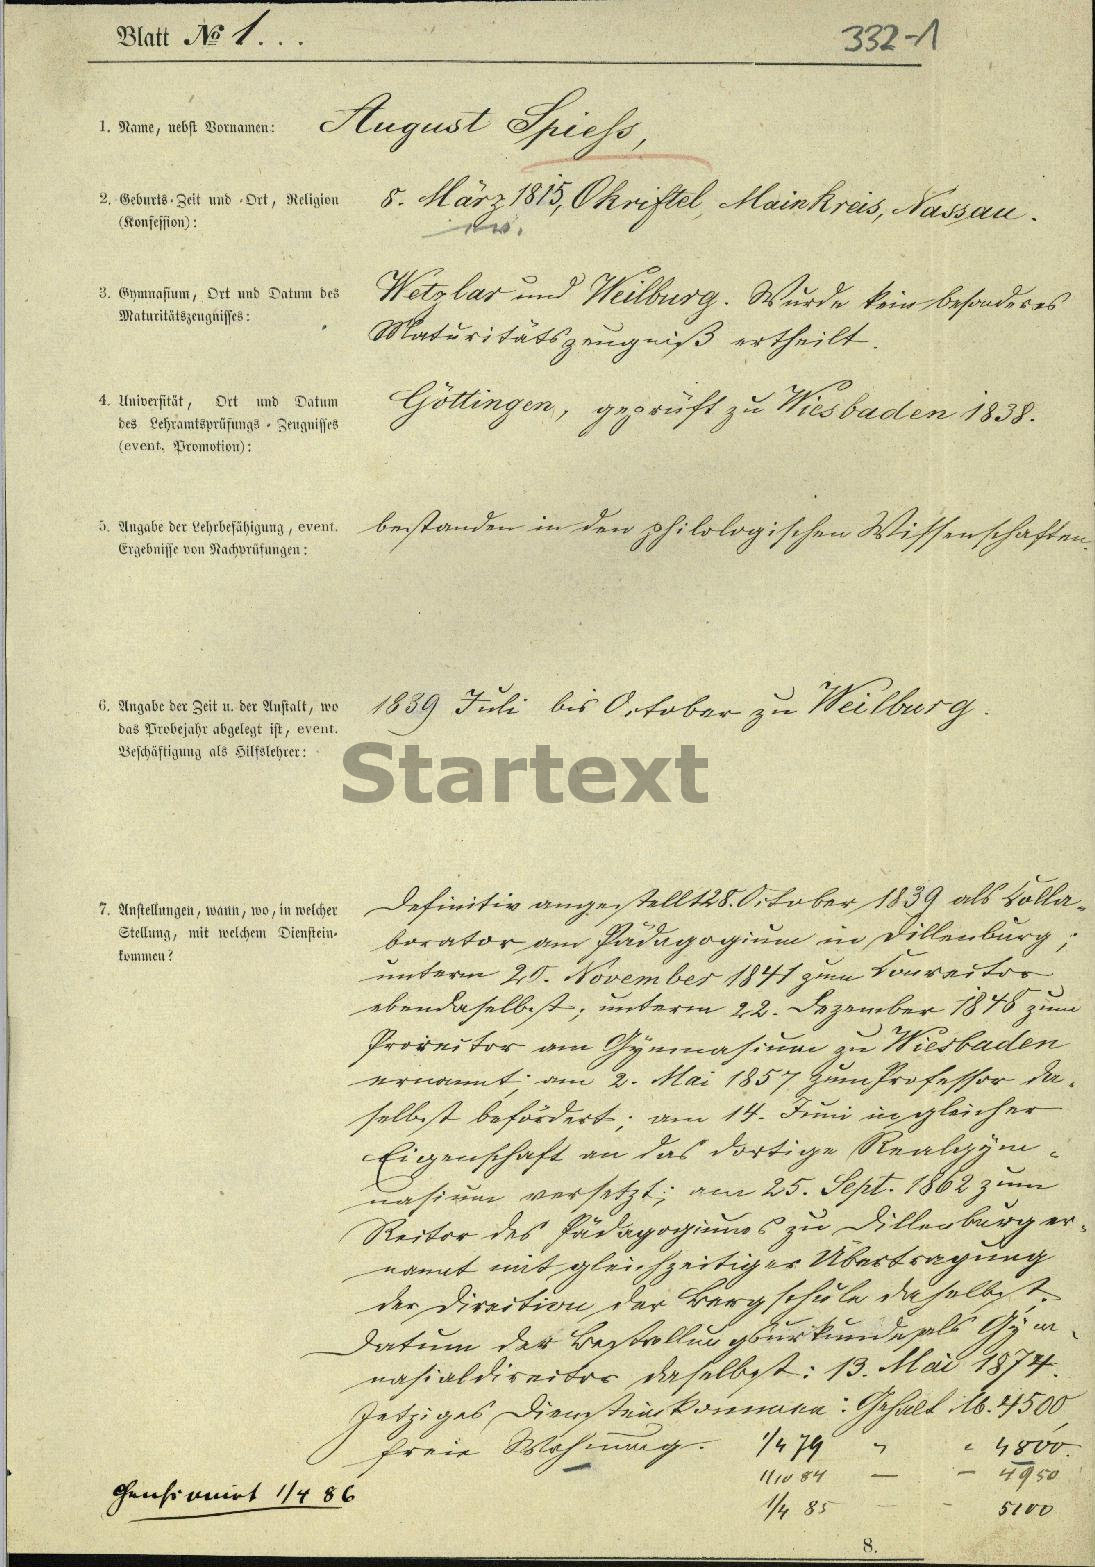 Blatt № 1...
332-1
1. Name, nebst Vornamen: August Spiess,
2. Geburts-Zeit und -Ort, Religion 8. März 1815, Okriftel, Mainkreis, Nassau.
(Konfession): ev.
3. Gymnasium, Ort und Datum des Wetzlar und Weilburg. Wurde kein besonderes
Maturitätszeugnisses: Maturitätszeugniß ertheilt.
4. Universität, Ort und Datum Göttingen, geprüft zu Wiesbaden 1838.
des Lehramtsprüfungs-Zeugnisses
(event. Promotion):
5. Angabe der Lehrbefähigung, event. bestanden in den philologischen Wissenschaften.
Ergebnisse von Nachprüfungen:
6. Angabe der Zeit u. der Anstalt, wo 1839 Juli bis October zu Weilburg.
das Probejahr abgelegt ist, event.
Beschäftigung als Hilfslehrer:
Startext
7. Anstellungen, wann, wo, in welcher Definitiv angestellt 28. October 1839 als Colla-
Stellung, mit welchem Dienstein- borator am Pädagogium in Dillenburg;
kommen? unterm November 1841 zum Conrector
ebendaselbst; unterm 22. Dezember zum
Prorector am Gymnasium zu Wiesbaden
ernannt; am 2. Mai 1857 zum Professor da-
selbst befördert; am 14. Juni in gleicher
Eigenschaft an das dortige Realgym-
nasium versetzt; am 25. Sept. 1862 zum
Rector des Pädagogiums zu Dillenburg er-
nannt mit gleichzeitiger Übertragung
der Direction der Bergschule daselbst.
Datum der Bestallungsurkunde als Gym-
nasialdirector daselbst: 13. Mai 1874.
Jetziges Diensteinkommen: Gehalt M. 4500,
freie Wohnung. 1/4 79 " " 4800.
1/10 84 — — 4950
Pensionirt 1/4 86 1/4 85 — - 5100
8.